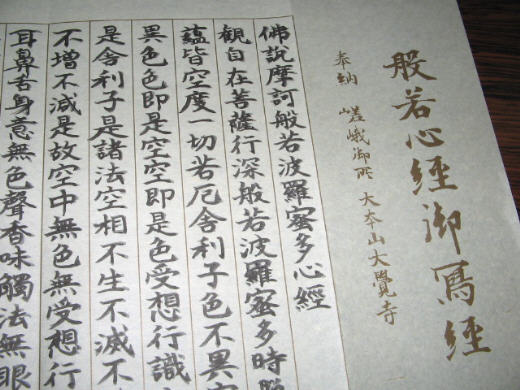 般若心經御冩經
奉納 嵯峨御所 大本山大覺寺
佛說摩訶般若波羅蜜多心經
觀自在菩薩行深般若波羅蜜多時照
蘊皆空度一切苦厄舍利子色不異空
異色色即是空空即是色受想行識
是舍利子是諸法空相不生不滅不
不增不減是故空中無色無受想行
耳鼻舌身意無色聲香味觸法無眼